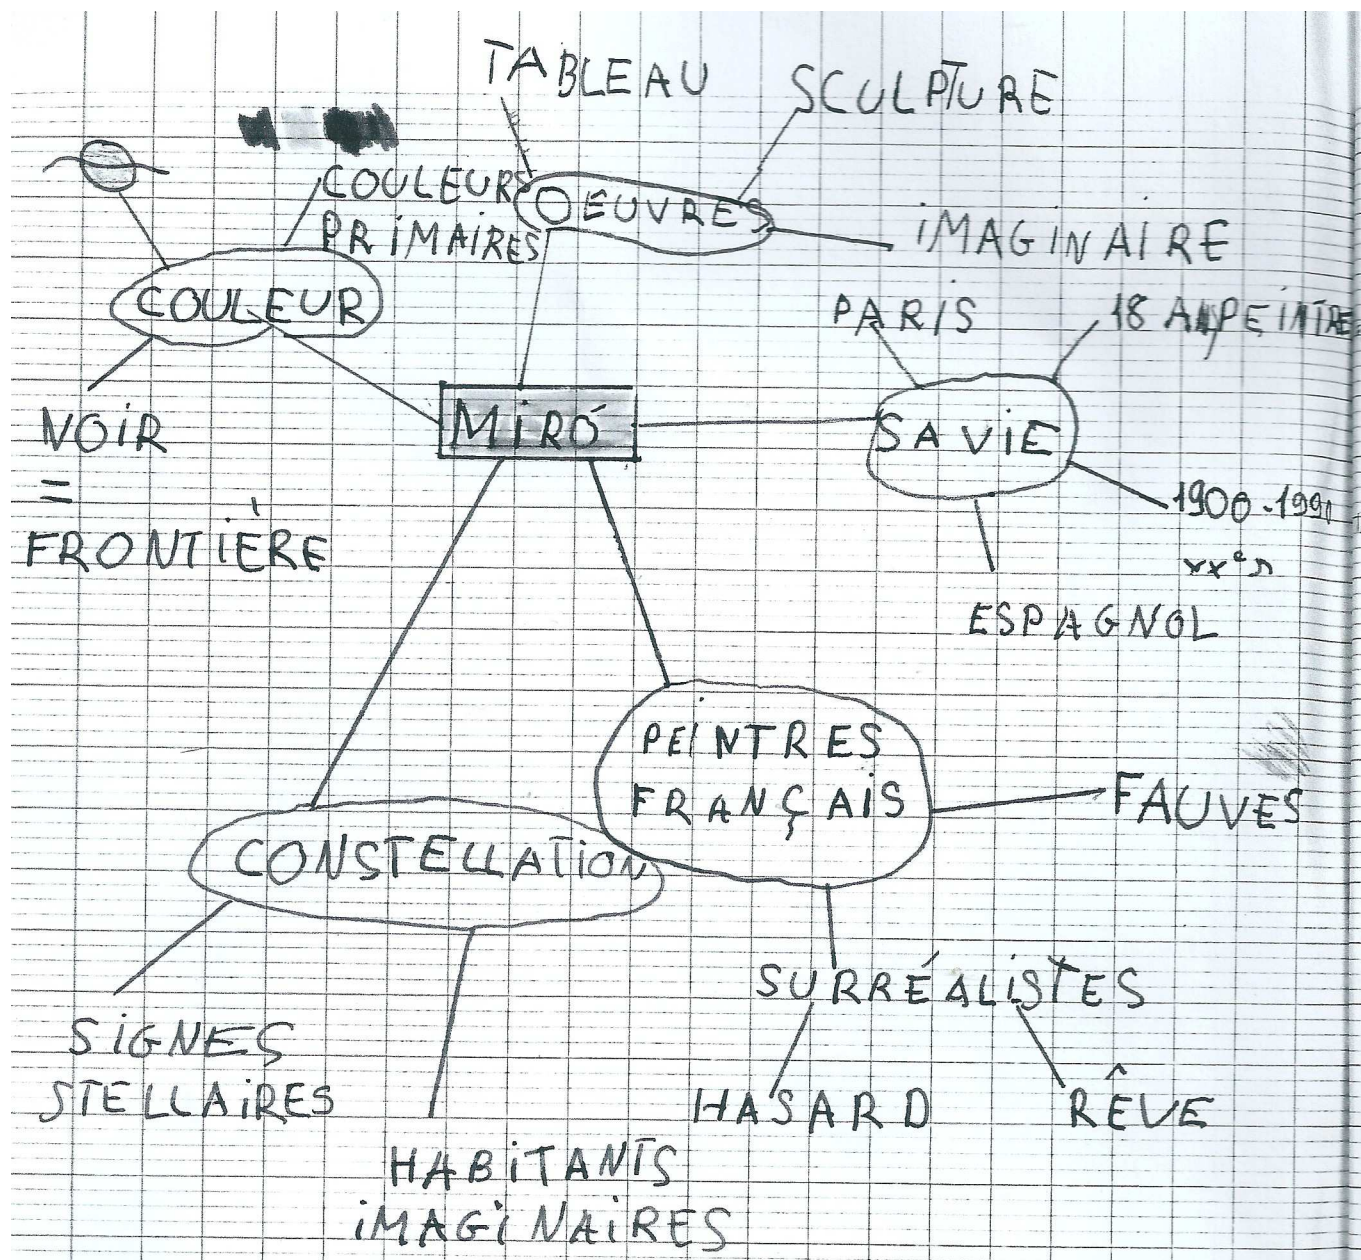 TABLEAU
SCULPTURE
COULEURS
PRIMAIRES
OEUVRES
IMAGINAIRE
COULEUR
PARIS
18 AN PEINTRE
MIRÓ
SA VIE
NOIR
=
FRONTIÈRE
1900-1990
XXe s
ESPAGNOL
PEINTRES
FRANÇAIS
FAUVES
CONSTELLATION
SURRÉALISTES
SIGNES
STELLAIRES
HASARD
RÊVE
HABITANTS
IMAGINAIRES